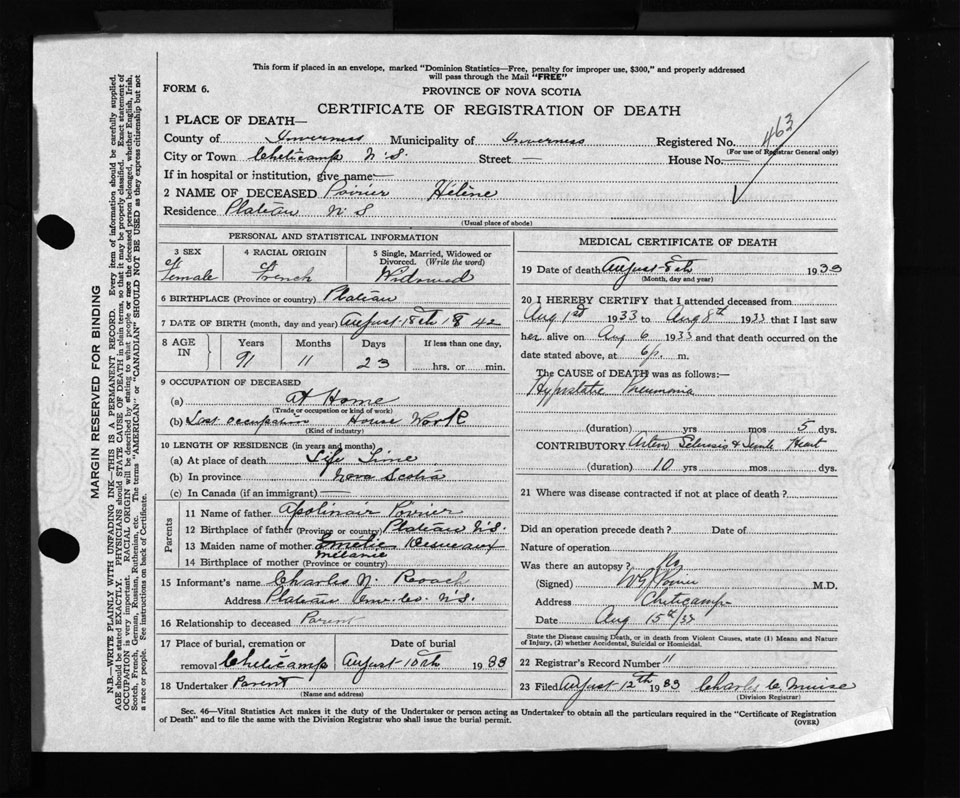 This form if placed in an envelope, marked "Dominion Statistics—Free, penalty for improper use, $300," and properly addressed
will pass through the Mail "FREE"
FORM 6.
PROVINCE OF NOVA SCOTIA
CERTIFICATE OF REGISTRATION OF DEATH
463
1 PLACE OF DEATH—
County of Inverness Municipality of Inverness Registered No.
(For use of Registrar General only)
City or Town Cheticamp N.S. Street — House No. —
If in hospital or institution, give name —
2 NAME OF DECEASED Poirier Hélène
Residence Plateau N S
(Usual place of abode)
PERSONAL AND STATISTICAL INFORMATION
3 SEX 4 RACIAL ORIGIN 5 Single, Married, Widowed or
Divorced. (Write the word)
Female French Widowed
6 BIRTHPLACE (Province or country) Plateau
7 DATE OF BIRTH (month, day and year) August 15th 1842
8 AGE IN Years Months Days If less than one day,
91 11 23 hrs. or min.
9 OCCUPATION OF DECEASED
(a) At Home
(Trade or occupation or kind of work)
(b) Last occupation House Work
(Kind of industry)
10 LENGTH OF RESIDENCE (in years and months)
(a) At place of death Life Time
(b) In province Nova Scotia
(c) In Canada (if an immigrant) —
Parents
11 Name of father Apolinair Poirier
12 Birthplace of father (Province or country) Plateau N.S.
13 Maiden name of mother Desveaux
melanie
14 Birthplace of mother (Province or country)
15 Informant's name Charles N. Roach
Address Plateau Inv. Co. N.S.
16 Relationship to deceased Parent
17 Place of burial, cremation or Date of burial
removal Cheticamp August 10th 1933
18 Undertaker Parent
(Name and address)
MEDICAL CERTIFICATE OF DEATH
19 Date of death August 8th 1933
(Month, day and year)
20 I HEREBY CERTIFY that I attended deceased from
Aug 1st 1933 to Aug 8th 1933 that I last saw
her alive on Aug 6 1933 and that death occurred on the
date stated above, at 6 p. m.
The CAUSE of DEATH was as follows:—
Hypostatic Pneumonia
(duration) yrs mos 5 dys.
CONTRIBUTORY Arterio Sclerosis & Senile Heart
(duration) 10 yrs mos dys.
21 Where was disease contracted if not at place of death?
Did an operation precede death? Date of
Nature of operation
Was there an autopsy? No
(Signed) Poirier M.D.
Address Cheticamp
Date Aug 15th/33
State the Disease causing Death, or in death from Violent Causes, state (1) Means and Nature
of Injury, (2) whether Accidental, Suicidal or Homicidal.
22 Registrar's Record Number 11
23 Filed August 12th 1933 Charles C. Muise
(Division Registrar)
Sec. 46—Vital Statistics Act makes it the duty of the Undertaker or person acting as Undertaker to obtain all the particulars required in the "Certificate of Registration
of Death" and to file the same with the Division Registrar who shall issue the burial permit.
(OVER)
MARGIN RESERVED FOR BINDING
N.B.—WRITE PLAINLY WITH UNFADING INK—THIS IS A PERMANENT RECORD. Every item of information should be carefully supplied.
AGE should be stated EXACTLY. PHYSICIANS should STATE CAUSE OF DEATH in plain terms, so that it may be properly classified. Exact statement of
OCCUPATION is very important. RACIAL ORIGIN will be described by stating to what people or race the deceased person belonged, whether English, Irish,
Scotch, French, German, Russian, Ruthenian, etc. The terms "AMERICAN" or "CANADIAN" SHOULD NOT BE USED as they express citizenship but not
a race or people. See instructions on back of Certificate.